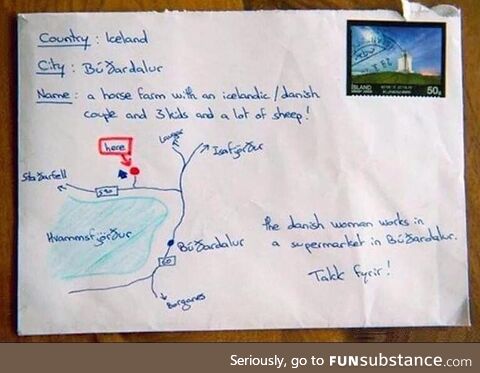 Country : Iceland
City : Búðardalur
Name : a horse farm with an icelandic/danish
couple and 3 kids and a lot of sheep!
ÍSLAND
50g
here
Laugar
Isafjörður
Staðarfell
590
Hvammsfjörður
Búðardalur
60
Borganes
the danish woman works in
a supermarket in Búðardalur.
Takk fyrir!
Seriously, go to FUNsubstance.com